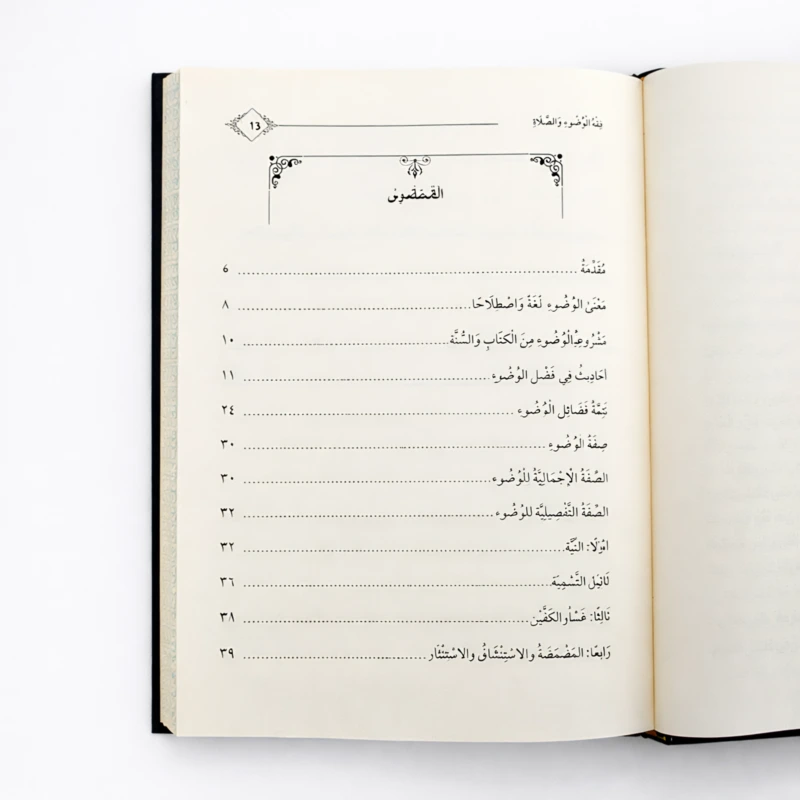 فِقْهُ الْوُضُوءِ وَالصَّلَاةِ 13
مُقَدِّمَةُ 6
مَعْنَى الْوُضُوءِ لُغَةً وَاصْطِلَاحًا ٨
الْوُضُوءِ مِنَ الْكِتَابِ وَالسُّنَّة ١٠
احَادِيثُ فِي فَضْلِ الْوُضُوءِ ١١
تَتِمَّةُ فَضَائِلِ الْوُضُوء ٢٤
صِفَةُ الْوُضُوءِ ٣٠
الصِّفَةُ الْإِجْمَالِيَّةُ لِلْوُضُوء ٣٠
الصِّفَةُ التَّفْصِيلِيَّة لِلْوُضُوء ٣٢
اوَّلًا: النِّيَّة ٣٢
التَّسْمِيَة ٣٦
الكَفَّيْنِ ٣٨
رَابِعًا: المَضْمَضَةُ والاسْتِنْشَاقُ والاسْتِنْثَار ٣٩